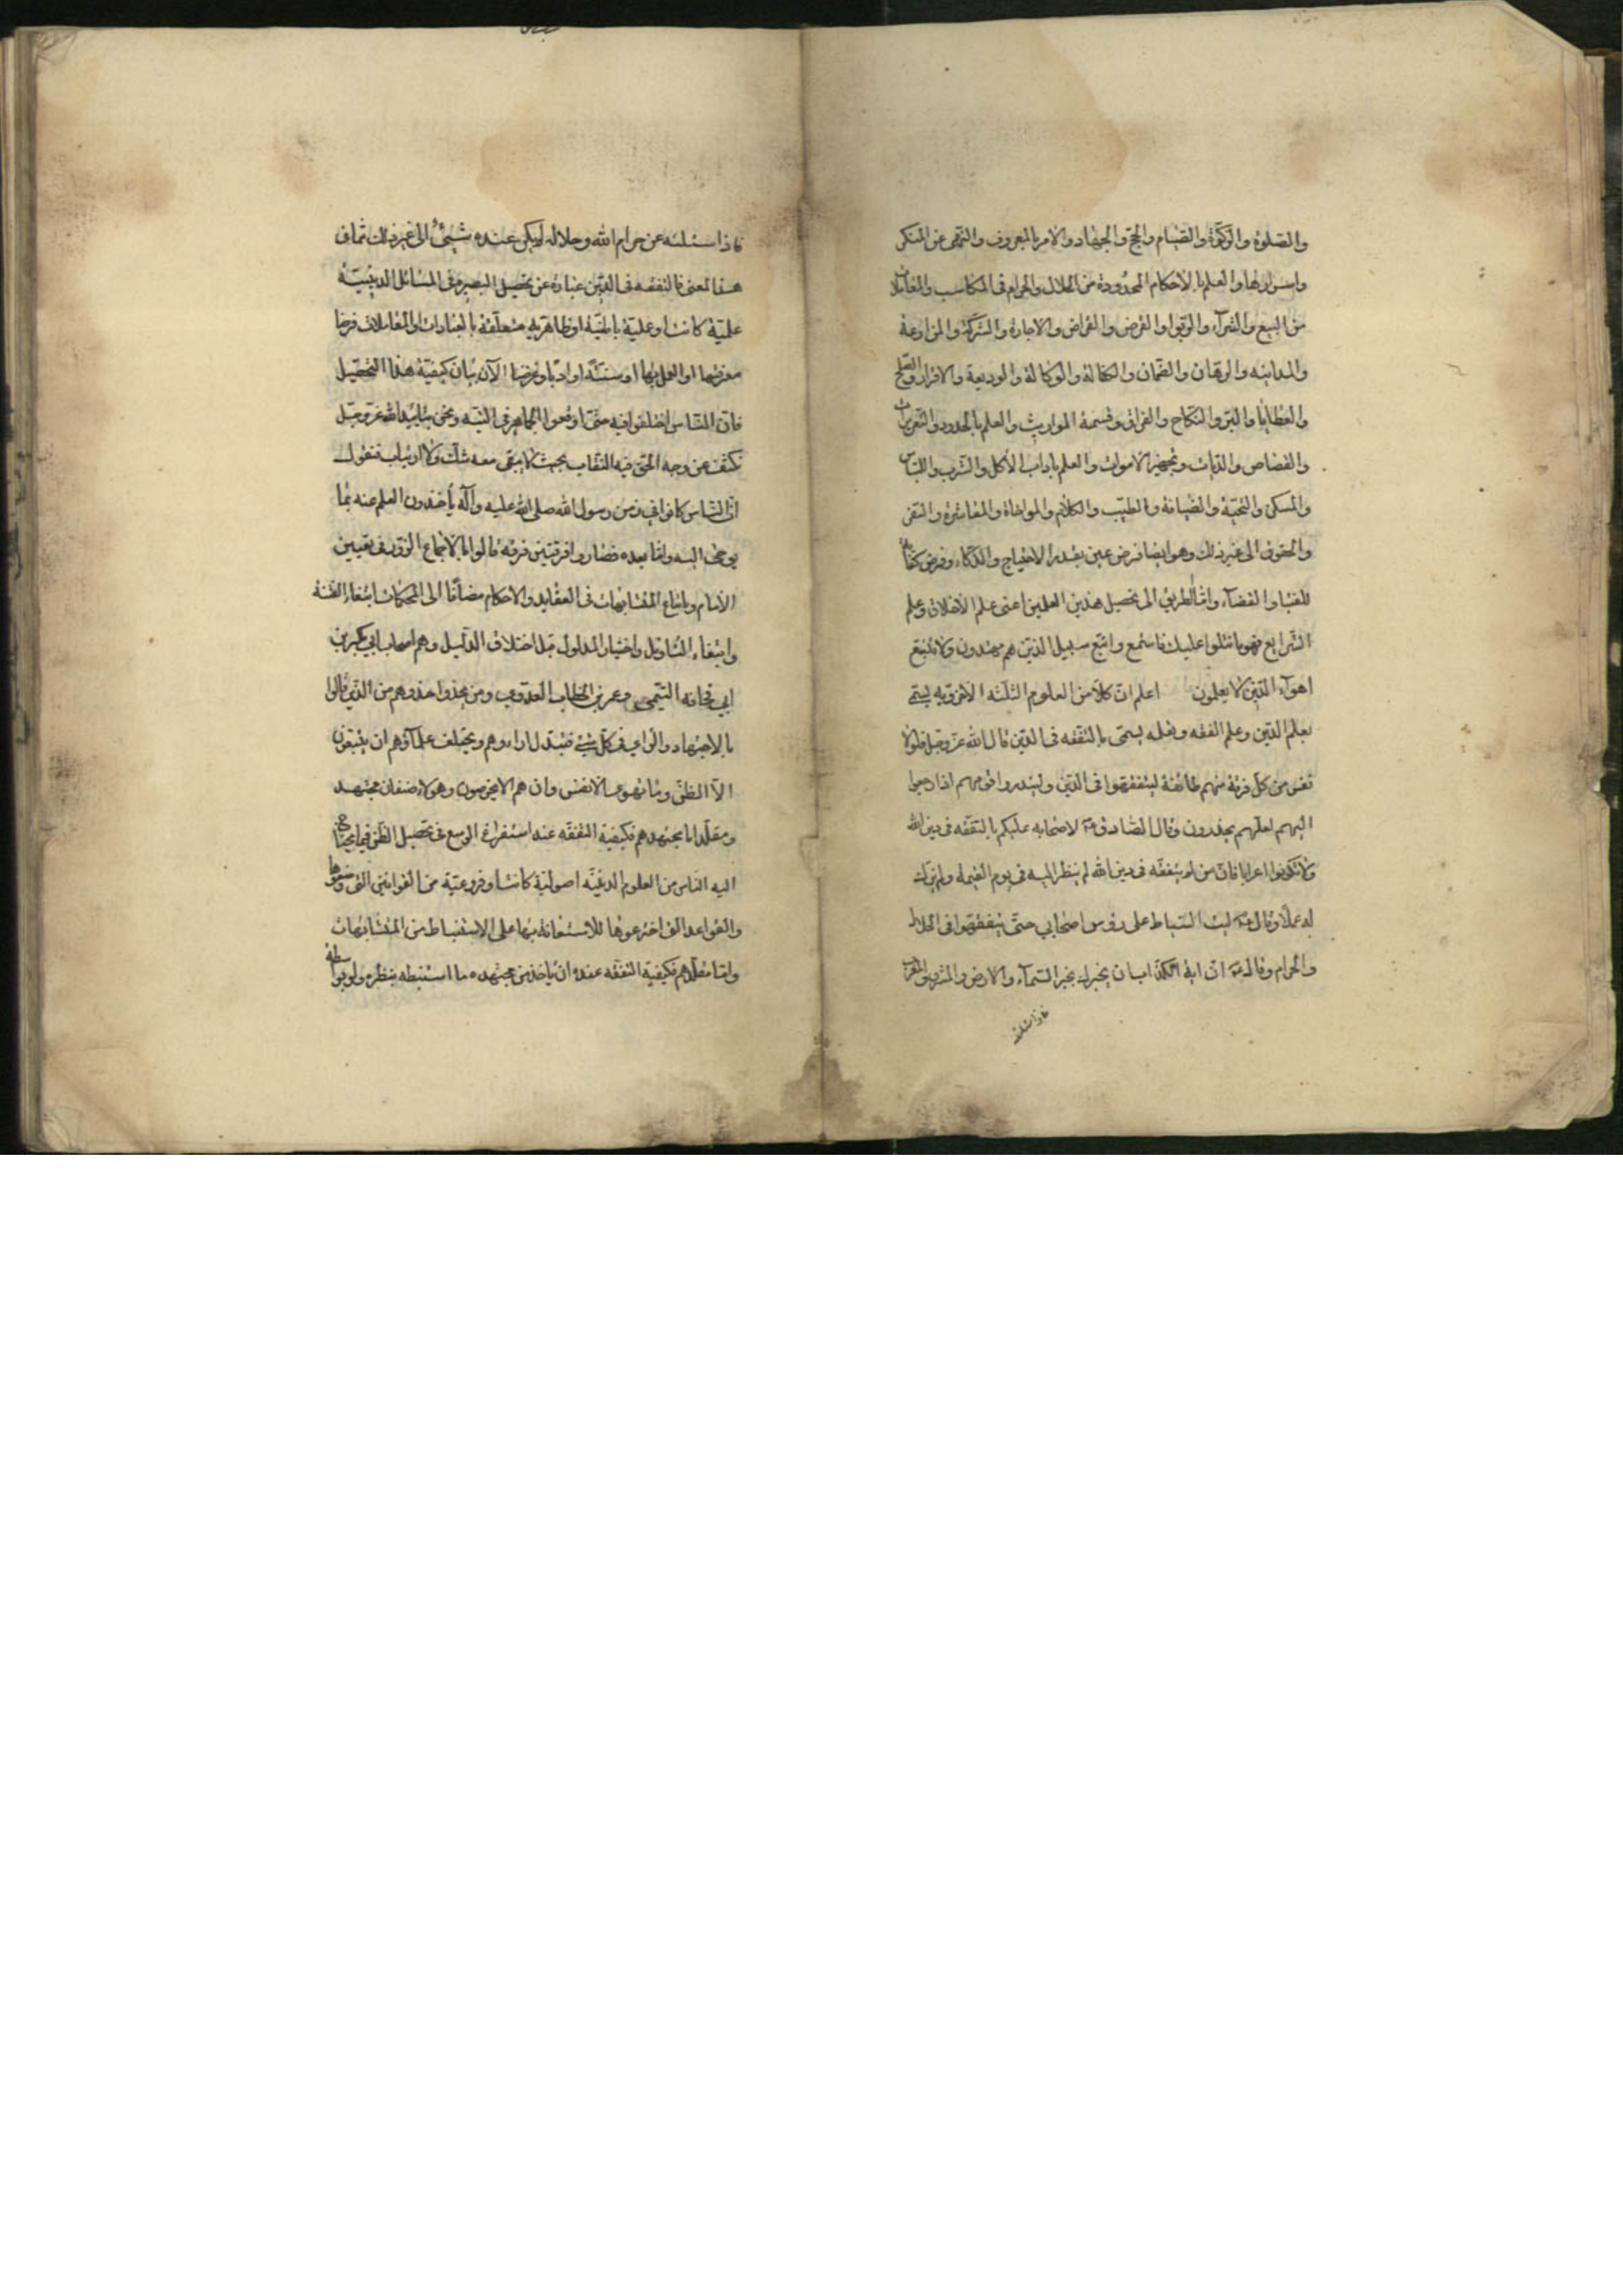 والصّلوة والزّكوة والصّيام والحجّ والجهاد والامر بالمعروف والنّهى عن المنكر
واسرارها والعلم بالأحكام المحدودة من الحلال والحرام فى المكاسب والمعاملات
من البيع والشرآء والرّبوا والقرض والقراض والاجارة والشركة والمزارعة
والمداينه والرهان والضّمان والكفالة والوكالة والوديعة والاقرار والصّلح
والعطايا والبرّ والنّكاح والفراق وقسمة المواريث والعلم بالحدود والتّعزيرات
والقصاص والدّيات وتجهيز الاموات والعلم باداب الأكل والشّرب واللباس
والمسكن والتّحيّة والضّيافة والطيّب والكلام والمواخاة والمعاشرة والسّفر
والحقوق الى غير ذلك وهو ايضا فرض عين بقدر الاحتياج والذّكاء وفرض كفاية
للفتيا والقضآء وامّا الطريق الى تحصيل هذين العلمين اعنى علم الأخلاق وعلم
الشّرايع فهو ما نتلوا عليك فاستمع واتبع سبيل الذين هم مهتدون ولا تتّبع
اهوآء الّذين لا يعلمون اعلم انّ كلا من العلوم الثّلثة الأخرويه يسمّى
بعلم الدّين وعلم الفقه وفعله يسمّى بالتفقّه فى الدّين قال الله عزّ وجلّ فلولا
نفر من كلّ فرقة منهم طائفة ليتفقّهوا فى الدّين ولينذروا قومهم اذا رجعوا
اليهم لعلّهم يحذرون وقال الصّادق عم لاصحابه عليكم بالتفقّه فى دين الله
ولا تكونوا اعرابا فانّ من لم يتفقّه فى دين الله لم ينظر اليه فى يوم القيمة ولم يزك
له عملا وقال عم ليت السّياط على رؤس اصحابي حتّى يتفقّهوا فى الحلال
والحرام وقال عم انّ اية الكذّاب ان يخبرك بخبر السّمآء والارض والمشرق والمغرب
فاذا سئلته
فاذا سئلته عن حرام الله وحلاله لم يكن عنده شيئ الى غير ذلك ممّا فى
هذا المعنى فالتفقه فى الدّين عبارة عن تحصيل البصيرة فى المسائل الدينيّة
علميّة كانت او عمليّة باطنيّة او ظاهريه متعلّقة بالعبادات او المعاملات فرضا
معرفتها او العمل بها او سنّة او ادبا وغرضنا الآن بيان كيفيّة هذا التّحصيل
فانّ النّاس اختلفوا فيه حتّى اوقعوا الجماهير فى التيه ونحن بتاييد الله عزّ وجلّ
نكشف عن وجه الحقّ فيه النّقاب بحيث لا يبقى معه شكّ ولا ارتياب فنقول
انّ النّاس كانوا فى زمن رسول الله صلى الله عليه وآله يأخذون العلم عنه بما
يوحى اليه وامّا بعده فصاروا فرقتين فرقة قالوا بالاجماع الزّور فى تعيين
الأمام وباتباع المتشابهات فى العقايد والاحكام مضافا الى المحكمات ابتغاء الفتنة
وابتغاء التّاويل واختيار المدلول قبل اختلاف الدّليل وهم اصحاب ابي بكر بن
ابي قحافه التّيمى وعمر بن الخطاب العدوي ومن يحذوا حذوهم من الذين قالوا
بالاجتهاد والراي فى كلّ شئ فتبدّل اراءوهم ويختلف علمآؤهم ان يتّبعون
الاّ الظنّ وما تهوى الأنفس وان هم الا يخرصون وهؤلاء صنفان مجتهد
ومقلّد اما مجتهدهم فكيفية التفقّه عنده استفراغ الوسع فى تحصيل الظّنّ فيما يحتاج
اليه النّاس من العلوم الدينيّه اصوليّة كانت او فروعيّة من القوانين التى وضعوها
والقواعد التى اخترعوها للأستعانة بها على الاستنباط من المتشابهات
وامّا مقلّدهم فكيفية التفقّه عنده ان ياخذ من مجتهده ما استنبطه بنظره ولو بواسطة